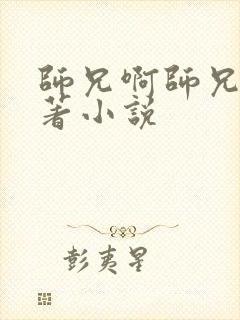 師兄啊師兄
著小說
彭夷星